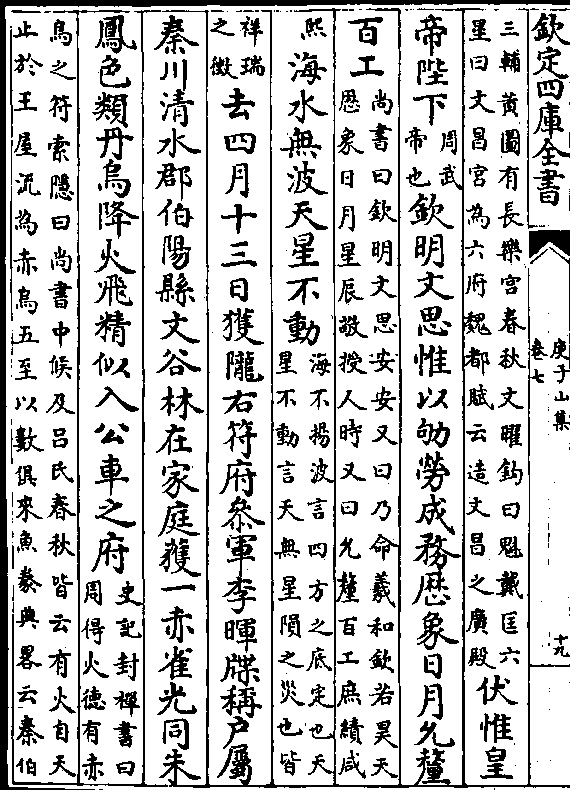 欽定四庫全書
庾子山集
卷七
十九
三輔黃圖有長樂宮春秋文曜鈎曰魁戴匡六
星曰文昌宮為六府魏都賦云造文昌之廣殿
伏惟皇
帝陛下
周武
帝也
欽明文思惟以劬勞成務厯象日月允釐
百工
尚書曰欽明文思安安又曰乃命羲和欽若昊天
厯象日月星辰敬授人時又曰允釐百工庶績咸
熙
海水無波天星不動
海不揚波言四方之底定也天
星不動言天無星隕之災也皆
祥瑞
之徵
去四月十三日獲隴右符府叅軍李暉牒稱戶屬
秦川清水郡伯陽縣文谷林在家庭獲一赤雀光同朱
鳳色類丹烏降火飛精似入公車之府
史記封禪書曰
周得火德有赤
烏之符索隱曰尚書中候及吕氏春秋皆云有火自天
止於王屋流為赤烏五至以數俱來魚豢典畧云秦伯